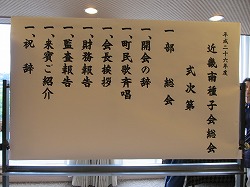 平成二十六年度
近畿南種子会総会
式次第
一部 総会
一、開会の辞
一、町民歌斉唱
一、会長挨拶
一、財務報告
一、監査報告
一、来賓ご紹介
一、祝辞